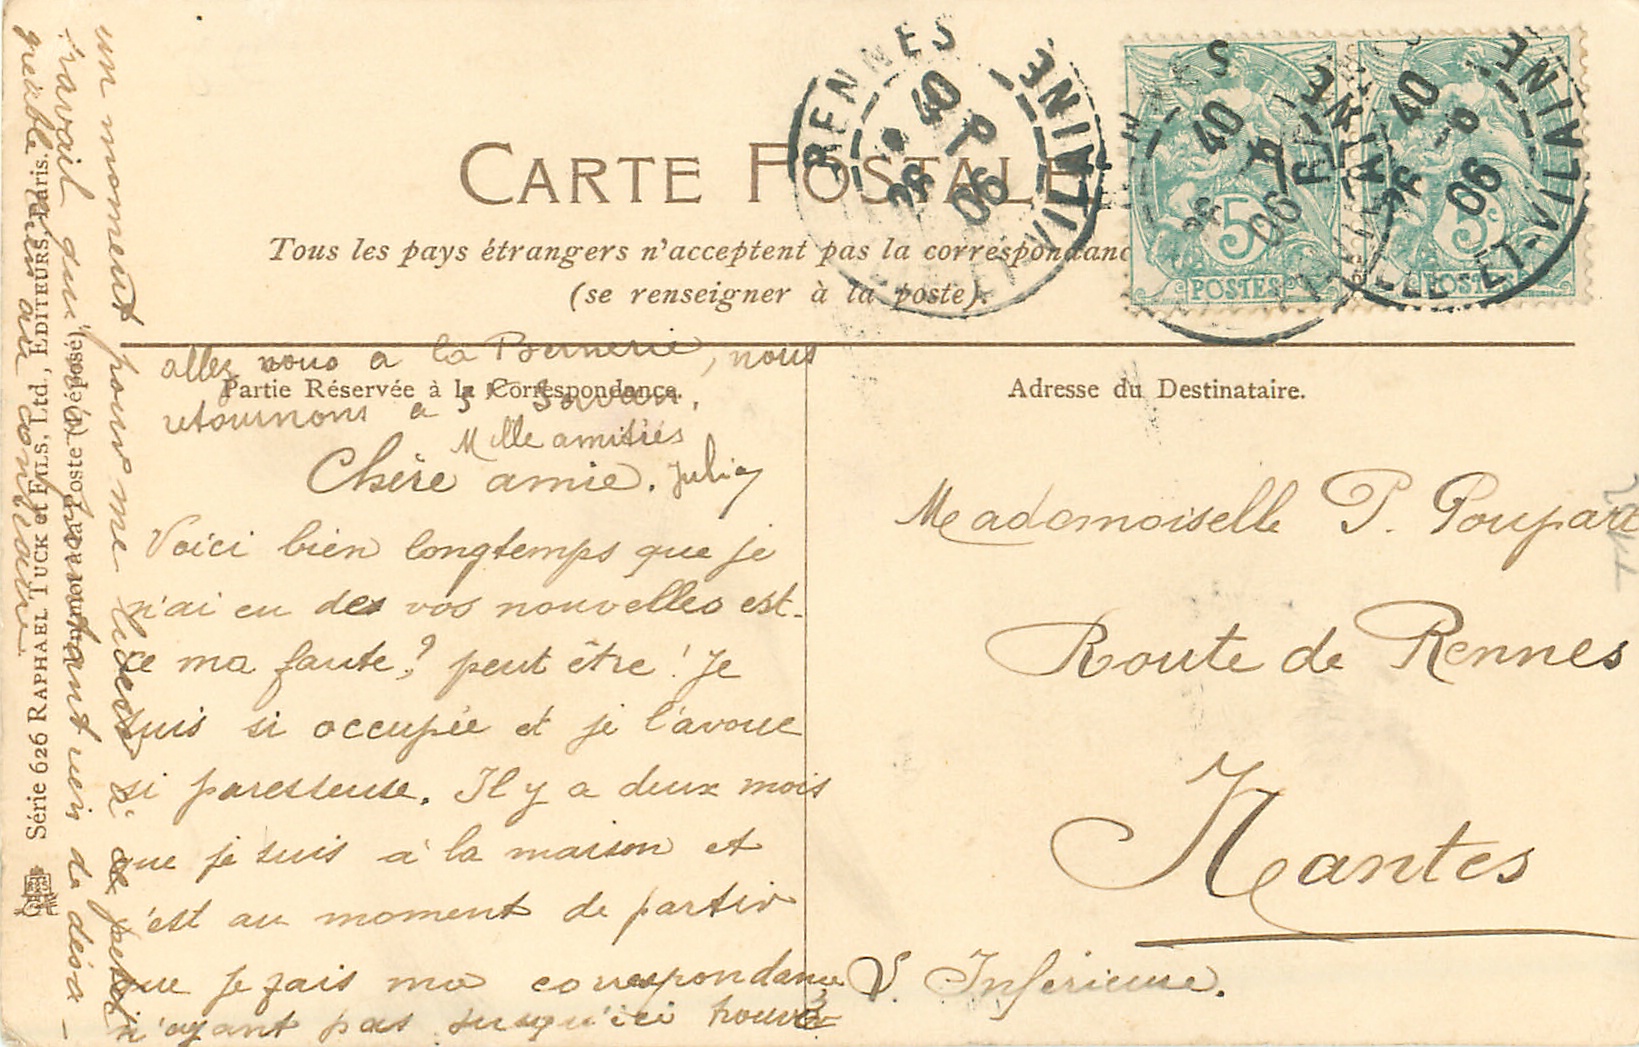 CARTE POSTALE
Tous les pays étrangers n'acceptent pas la correspondanc
(se renseigner à la poste).
RENNES
ILLE-ET-VILAINE
5
POSTES
5
POSTES
Partie Réservée à la Correspondance.
Adresse du Destinataire.
Chère amie.
Voici bien longtemps que je
n'ai eu des vos nouvelles est-
ce ma faute? peut être! Je
suis si occupée et je l'avoue
si paresseuse. Il y a deux mois
que je suis à la maison et
c'est au moment de partir
que je fais ma correspondance
n'ayant pas jusqu'ici trouvé
un moment pour me livrer à ce petit
travail qui n'a pourtant rien de désa-
gréable bien au contraire
allez vous à la Bernerie, nous
retournons à St
Mille amitiés
Julia
Mademoiselle P. Poupart
Route de Rennes
Nantes
L. Inférieure.
Série 626 RAPHAEL TUCK et FILS, Ltd., EDITEURS, Paris.
(Déposé)